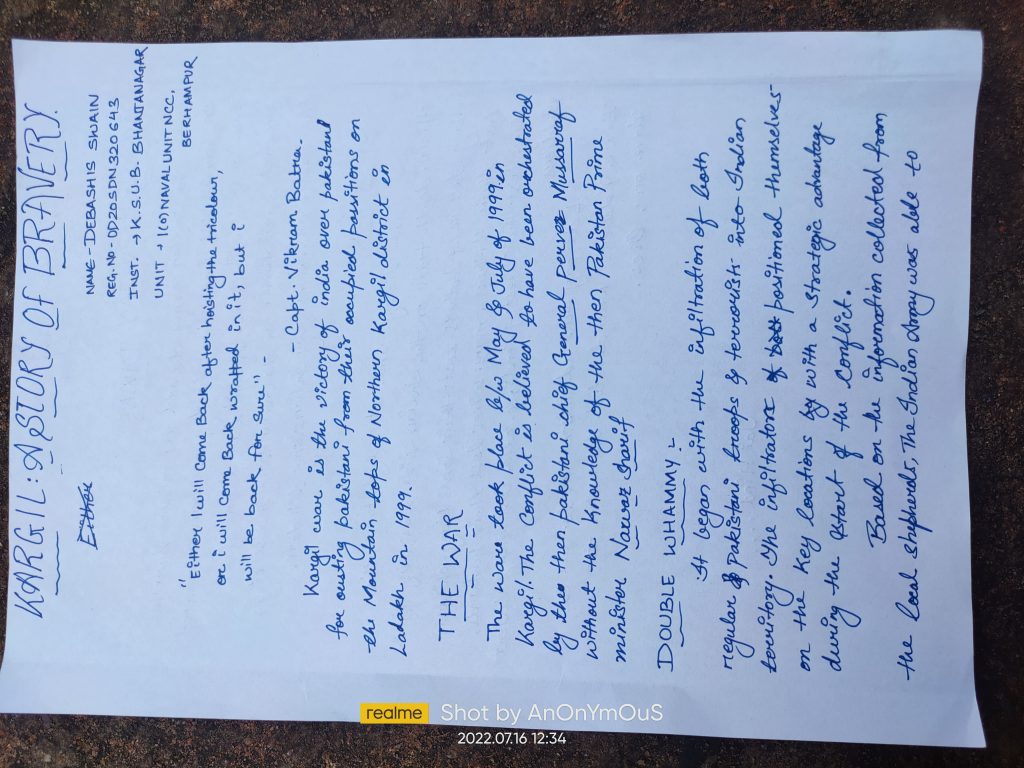 KARGIL: A STORY OF BRAVERY.
NAME - DEBASHIS SWAIN
REG. NO - OD20SDN320643
INST. → K.S.U.B. BHANJANAGAR
UNIT → 1(O) NAVAL UNIT NCC,
BERHAMPUR
"Either I will Come Back after hoisting the tricolour,
or i will Come Back wrapped in it, but i
will be back for Sure" -
- Capt. Vikram Batra.
Kargil war is the victory of india over pakistani
for ousting pakistani from their occupied positions on
the Mountain tops of Northern Kargil district in
Ladakh in 1999.
THE WAR
The ware took place b/w May & July of 1999 in
Kargil. The Conflict is believed to have been orchestrated
by the then pakistani chief General Pervez Musarraf
without the Knowledge of the then Pakistan Prime
minister Nawaz Sharif
DOUBLE WHAMMY -
It began with the infiltration of both
regular Pakistani troops & terrorists into Indian
territory. The infiltators positioned themselves-
on the Key locations by with a Strategic advantage
during the start of the Conflict.
Based on the information collected from
the local shepherds, The Indian Army was able to
realme Shot by AnOnYmOuS
2022.07.16 12:34